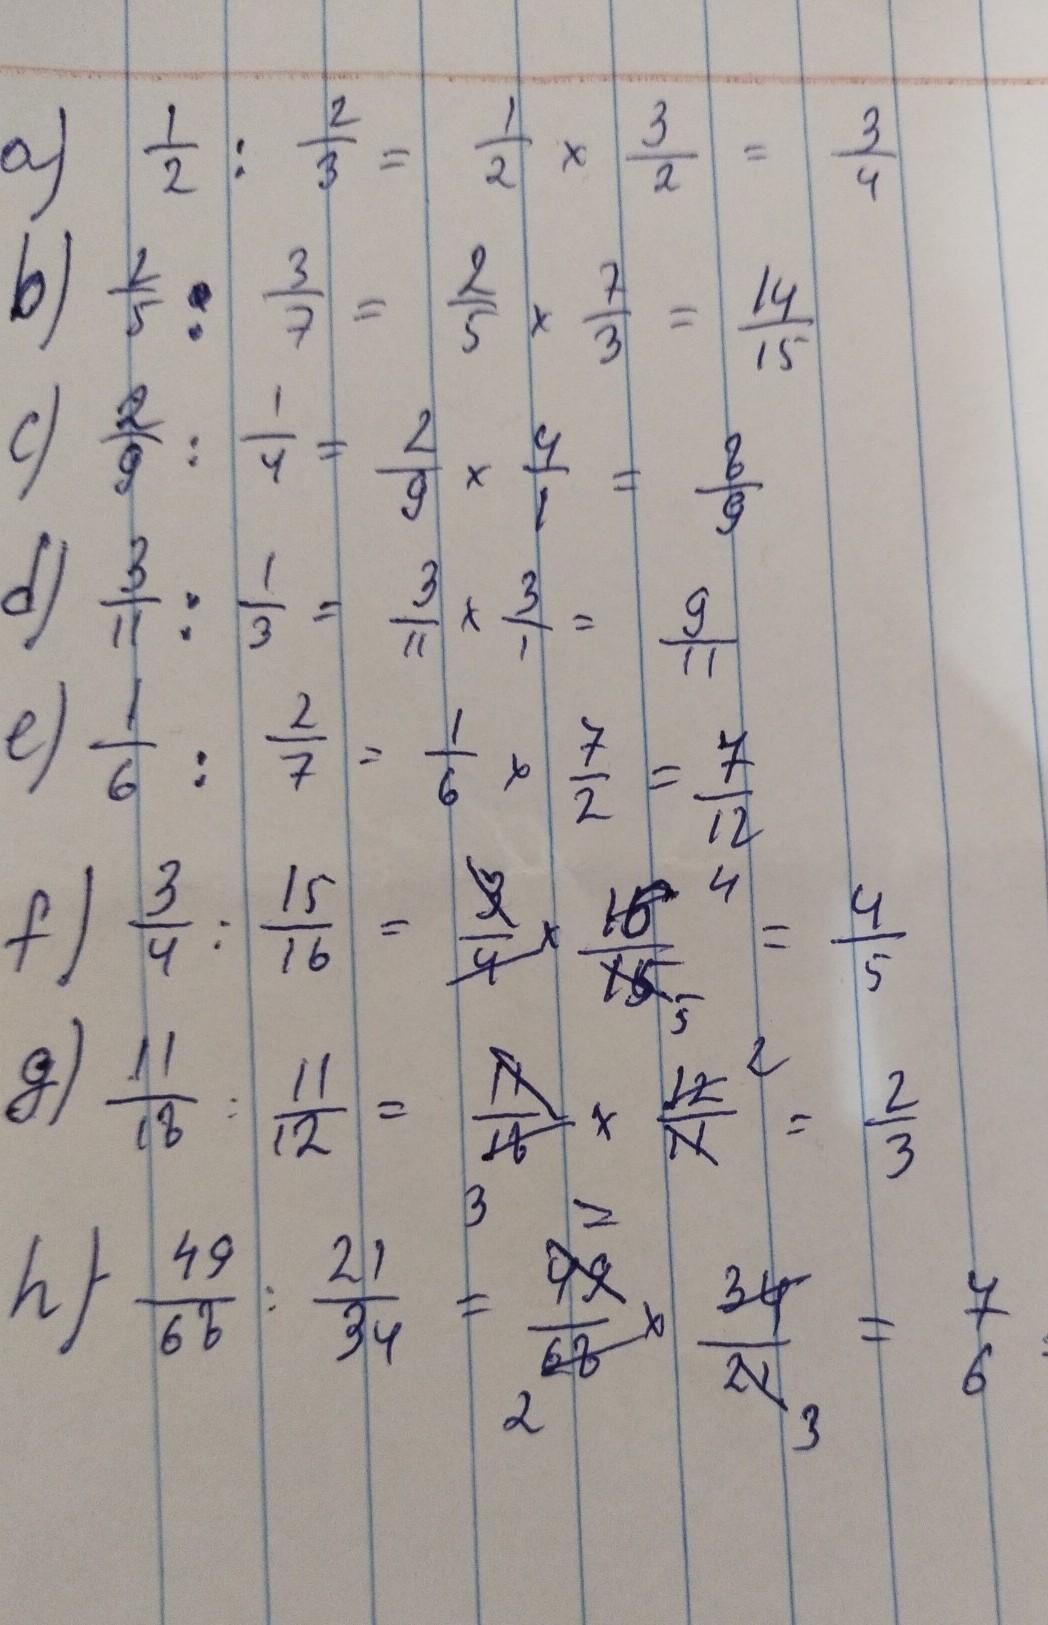 a) 1/2 : 2/3 = 1/2 × 3/2 = 3/4
b) 2/5 : 3/7 = 2/5 × 7/3 = 14/15
c) 2/9 : 1/4 = 2/9 × 4/1 = 8/9
d) 3/11 : 1/3 = 3/11 × 3/1 = 9/11
e) 1/6 : 2/7 = 1/6 × 7/2 = 7/12
f) 3/4 : 15/16 = 3/4 × 16/15 4 5 = 4/5
g) 11/18 : 11/12 = 11/18 3 × 12/11 2 = 2/3
h) 49/68 : 21/34 = 7 49/68 2 × 34/21 3 = 7/6